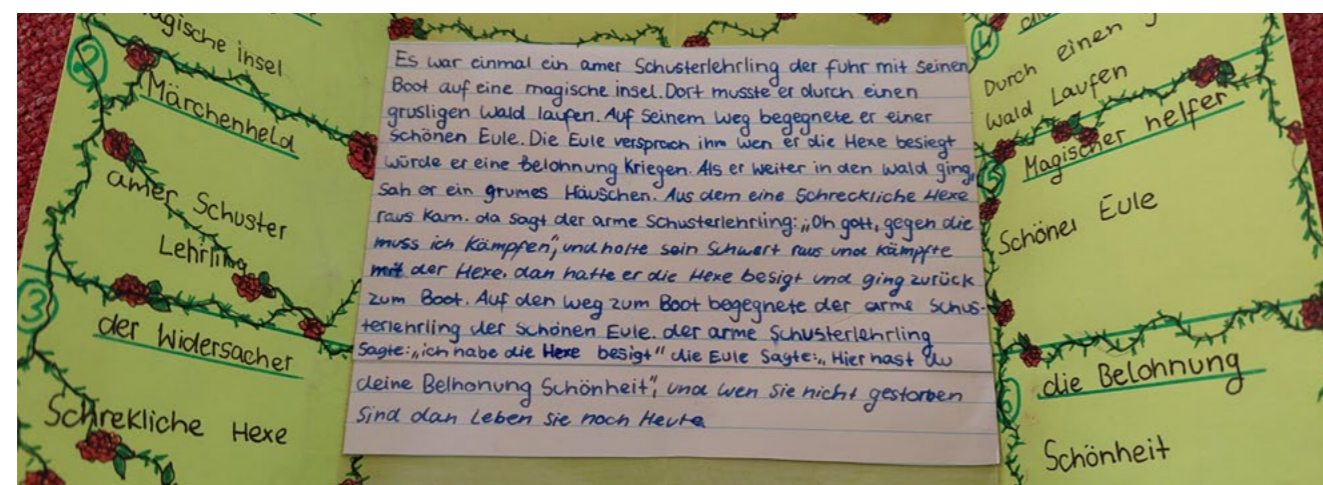 magische insel
2
Märchenheld
amer Schuster
Lehrling
3
der Widersacher
Schrekliche Hexe
Es war einmal ein amer Schusterlehrling der fuhr mit Seinen
Boot auf eine magische insel. Dort musste er durch einen
grusligen Wald laufen. Auf Seinem Weg begegnete er einer
Schönen Eule. Die Eule versprach ihm wen er die Hexe besiegt
würde er eine Belohnung Kriegen. Als er weiter in den Wald ging,
Sah er ein grumes Häuschen. Aus dem eine Schreckliche Hexe
raus Kam. da sagt der arme Schusterlehrling: „Oh gott, gegen die
muss ich Kämpfen“, und holte sein Schwert raus und kämpfte
mit der Hexe. dan hatte er die Hexe besigt und ging zurück
zum Boot. Auf den Weg zum Boot begegnete der arme Schus-
terlehrling der Schönen Eule. der arme Schusterlehrling
Sagte: „ich habe die Hexe besigt“ die Eule Sagte: „Hier hast du
deine Belhonung Schönheit“, und wen Sie nicht gestorben
Sind dan Leben Sie noch Heute
4
einen
Durch
Wald Laufen
5
Magischer helfer
Schöner Eule
6
die Belohnung
Schönheit